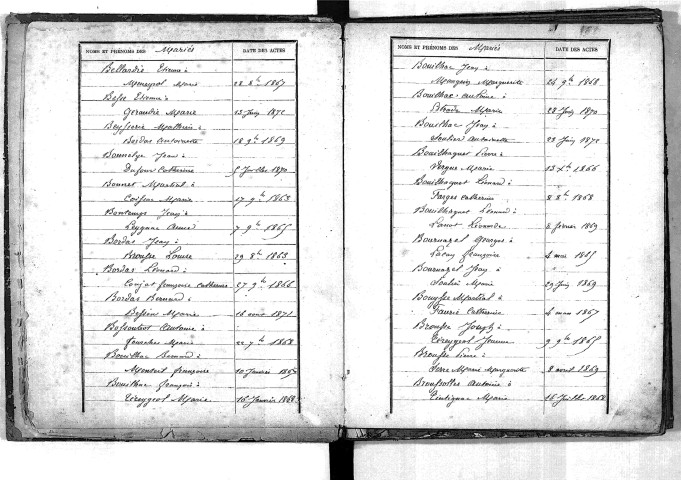 NOMS ET PRÉNOMS DES Mariés DATE DES ACTES
Bellardie Etienne à
Meneyrol Marie 22 8bre 1867
Besse Etienne à
Geraudie Marie 13 Juin 1870
Beysserie Mathurin à
Bordas Antoinette 18 9bre 1869
Bonnelye Jean à
Dufour Catherine 5 Juillet 1870
Bonnet Martial à
Marie 17 9bre 1863
Bontemps Jean à
Leygnac 7 9bre 1865
Bordas Jean à
Brousse Louise 29 8bre 1863
Bordas Léonard à
Conjat françoise Catherine 27 9bre 1866
Bordas Bernard à
Bessine Marie 16 avril 1871
Bossoutrot Antoine à
Marie 22 7bre 1868
Bouilhac Bernard à
Monteil françoise 10 Janvier 1865
Bouilhac françois à
Tereygeol Marie 16 Janvier 1868
NOMS ET PRÉNOMS DES Mariés DATE DES ACTES
Bouilhac Jean à
Marguerite 24 9bre 1868
Bouilhac antoine à
Marie 28 Juin 1870
Bouilhac Jean à
Soulier Antoinette 22 Juin 1870
Bouilhaguet Pierre à
Vergne Marie 13 Xbre 1866
Bouilhaguet Léonard à
Farges Catherine 8 8bre 1868
Bouilhaguet Léonard à
Lanot Léonarde 8 février 1869
Bournazel Georges à
Lacau françoise 4 mai 1865
Bournazel Jean à
Soulier Marie 29 Juin 1869
Bouysse Martial à
Faurie Catherine 4 mars 1867
Brousse Joseph à
Tereygeol Jeanne 9 9bre 1865
Brousse Pierre à
Serre Marie Marguerite 8 avril 1869
Broussolles Antoine à
Tintignac Marie 16 Juillet 1868